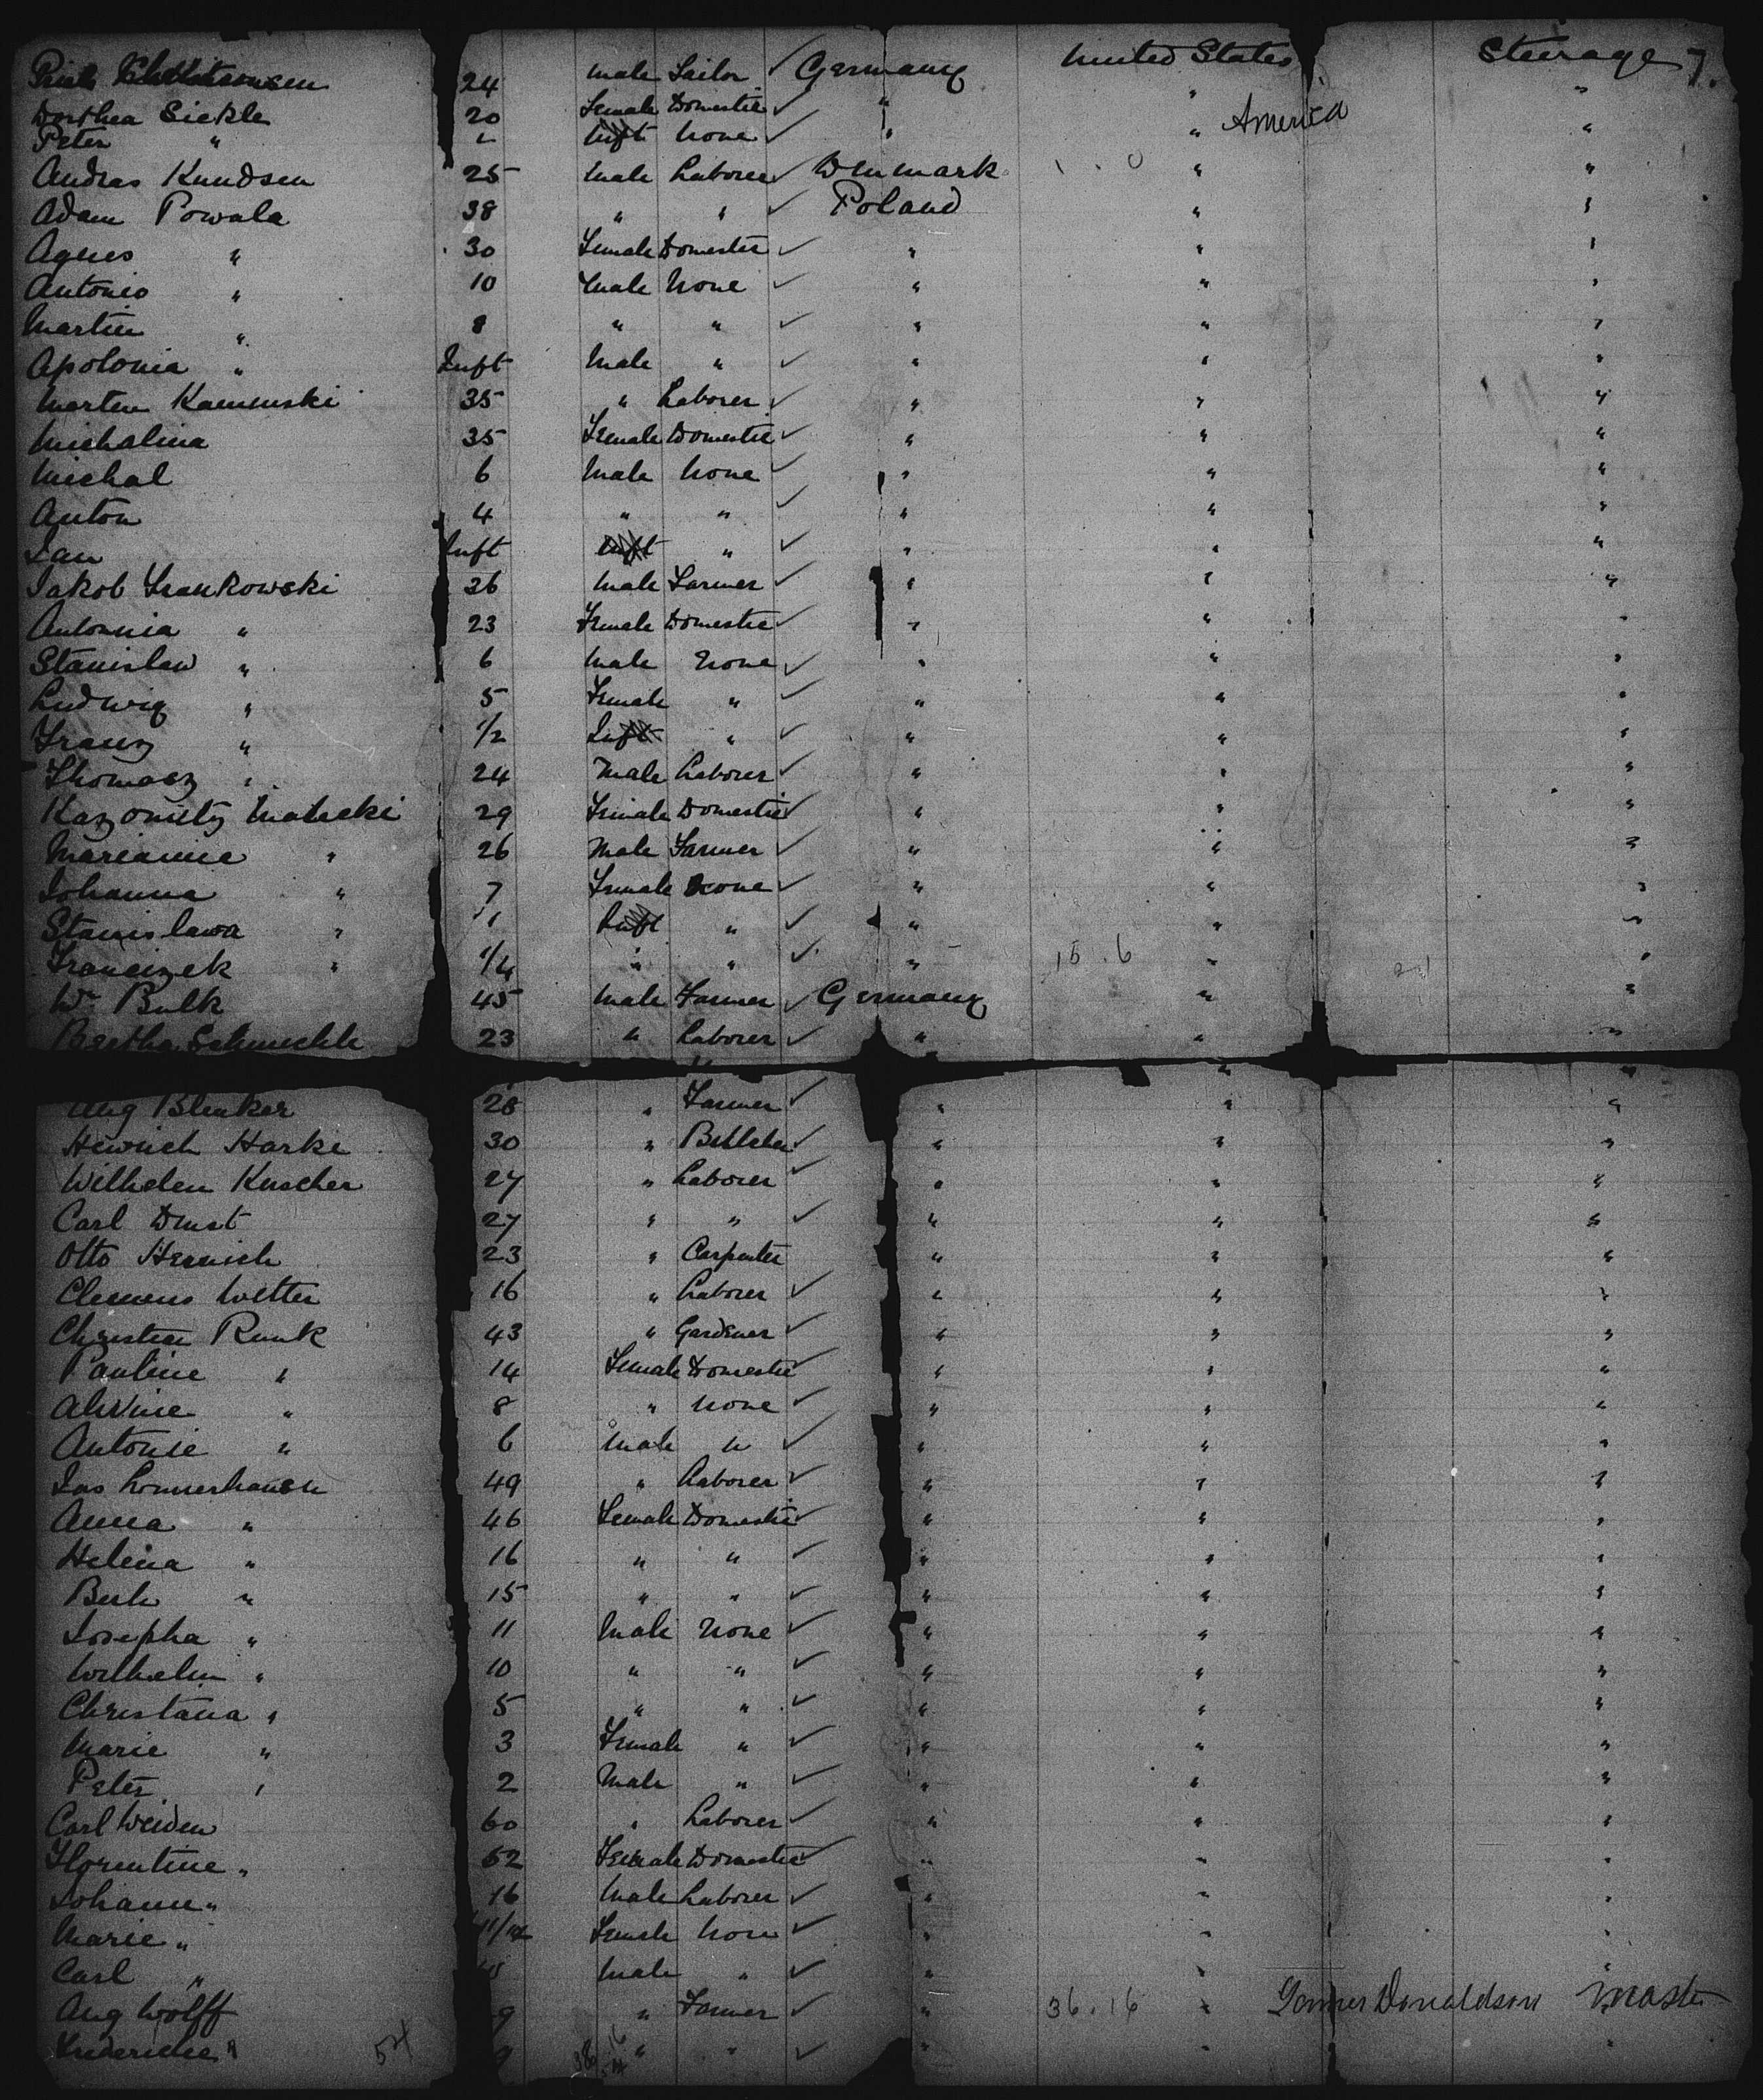 24 male Sailor ✓ Germany United States Steerage 7.
Dorthea Sickle 20 Female Domestic ✓ " " America "
Peter " Inft None ✓ " " "
Andras Knudsen 25 male Laborer ✓ Denmark " "
Adam Powala 38 " " ✓ Poland " "
Agnes " 30 Female Domestic ✓ " " "
Antonio " 10 male None ✓ " " "
Martin " 8 " " ✓ " " "
Apolonia " Inft Male " ✓ " " "
Marten Kaminski 35 " Laborer ✓ " " "
Michalina 35 Female Domestic ✓ " " "
Michal 6 Male None ✓ " " "
Anton 4 " " ✓ " " "
Jan Inft Inft " ✓ " " "
Jakob Frankowski 26 Male Farmer ✓ " " "
Antonnia " 23 Female Domestic ✓ " " "
Stanislaw " 6 Male None ✓ " " "
Ludwig " 5 Female " ✓ " " "
Franz " 1/2 Inft " ✓ " " "
Thomasz " 24 Male Laborer ✓ " " "
29 Female Domestic ✓ " " "
Marianne " 26 Male Farmer ✓ " " "
Johanna " 7 Female None ✓ " " "
Stanislawa " 1 Inft " ✓ " " "
Francizek " 1/4 " " ✓ " 15.6 " "
Wm Bulk 45 Male Farmer ✓ Germany " "
Bertha 23 " Laborer ✓ " " "
Aug Blenker 28 " Farmer ✓ " " "
Heinrich Harke 30 " ✓ " " "
Wilhelm Kuscher 27 " Laborer ✓ " " "
Carl Dust 27 " " ✓ " " "
Otto Hernich 23 " Carpenter " " "
Clemens Witter 16 " Laborer ✓ " " "
Christian Runk 43 " Gardener ✓ " " "
Pauline " 14 Female Domestic ✓ " " "
Alvine " 8 " None ✓ " " "
Antonie " 6 Male " ✓ " " "
Jas 49 " Laborer ✓ " " "
Anna " 46 Female Domestic ✓ " " "
Helena " 16 " " ✓ " " "
" 15 " " ✓ " " "
Josepha " 11 Male None ✓ " " "
Wilhelm " 10 " " ✓ " " "
Christana " 5 " " ✓ " " "
Marie " 3 Female " ✓ " " "
Peter " 2 Male " ✓ " " "
Carl Weiden 60 " Laborer ✓ " " "
Florentine " 52 Female Domestic ✓ " " "
Johann " 16 Male Laborer ✓ " " "
Marie " 11/12 Female None ✓ " " "
Carl " Male " ✓ " " "
Aug Wolff 9 " Farmer ✓ " 36.16 " Donaldson Master
Friderike " 54 9 " " ✓ " "